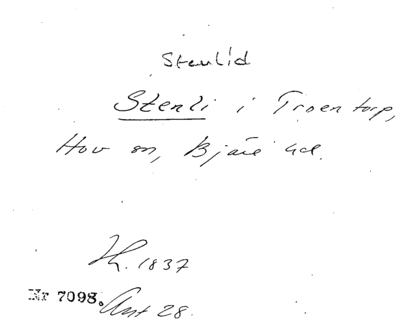 Stenlid
Stenli i Troentorp,
Hov sn, Bjäre hd.
Lh. 1837
Nr 7098. Ant 28.